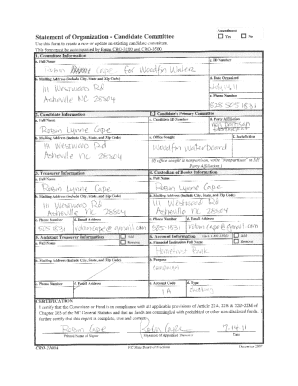 Amendment
Statement of Organization - Candidate Committee
Yes No
Use this form to create a new or update an existing candidate committee.
This form must be accompanied by forms CRO-3100 and CRO-3500
1. Committee Information
a. Full Name
c. ID Number
Robin Cape for Woodfin Water
b. Mailing Address (include City, State and Zip Code)
d. Date Organized
111 Westwood Rd
Asheville NC 28804
e. Phone Number
828 505 1831
2. Candidate Information
Candidate's Primary Committee
a. Full Name
c. Candidate ID Number
d. Party Affiliation
Robin Lynne Cape
b. Mailing Address (include City, State, and Zip Code)
e. Office Sought
f. Jurisdiction
111 Westwood Rd
Woodfin Waterboard
Asheville NC 28804
(If office sought is nonpartisan, write "nonpartisan" in 2d. Party Affiliation.)
3. Treasurer Information
4. Custodian of Books Information
a. Full Name
a. Full Name
Robin Lynne Cape
b. Mailing Address (include City, State, and Zip Code)
b. Mailing Address (include City, State, and Zip Code)
111 Westwood Rd
Asheville NC 28804
c. Phone Number
d. Email Address
c. Phone Number
d. Email Address
505-1831
robincape@gmail.com
5. Assistant Treasurer Information
Add
Remove
6. Account Information
Add
Remove
a. Full Name
a. Financial Institution Full Name
HomeTrust Bank
b. Mailing Address (include City, State, and Zip Code)
b. Purpose
campaign
c. Phone Number
d. Email Address
c. Account Code
d. Type
CERTIFICATION
I certify that the Committee or Fund is in compliance with all applicable provisions of Article 22A, 22B & 22D-22M of
Chapter 163 of the NC General Statutes and that no funds are commingled with prohibited or other non-disclosed funds. I
further certify that this report is complete, true and correct.
Robin Cape
7-14-11
Printed Name of Signer
Signature of Appointed Treasurer
Date
CRO-2100A
NC State Board of Elections
December 2007